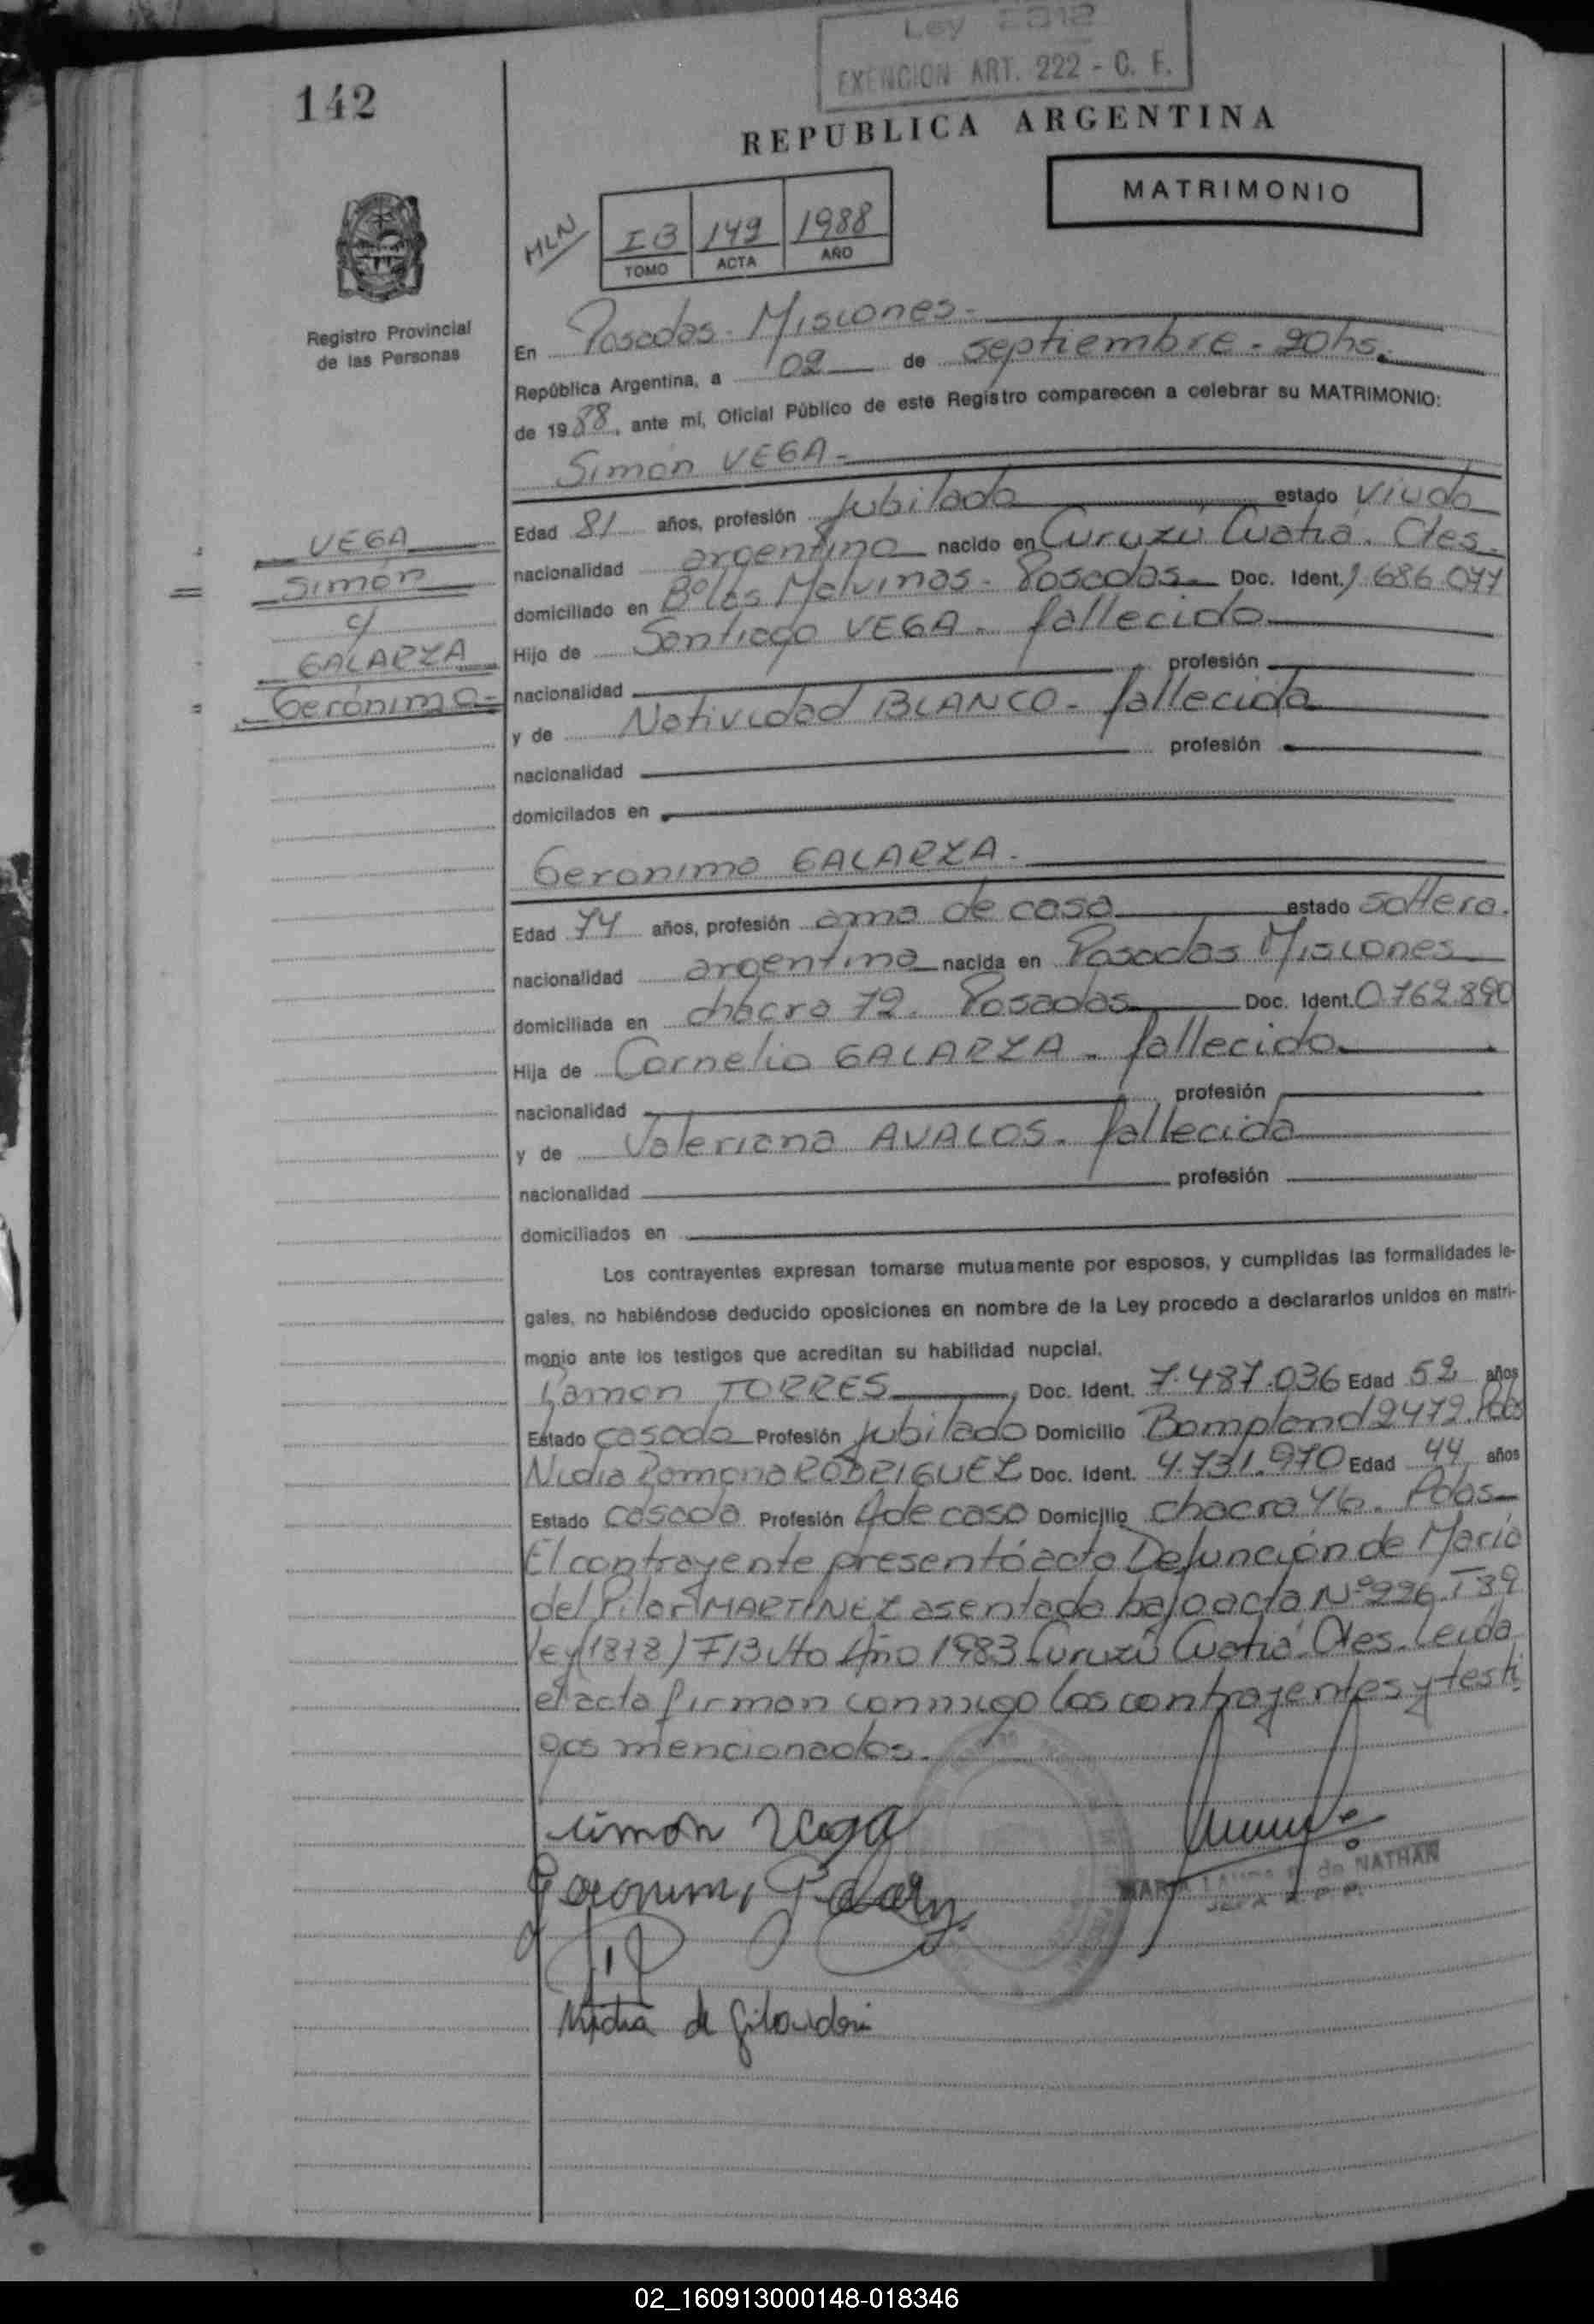 Ley 2312
EXENCION ART. 222 - C. F.
142
REPUBLICA ARGENTINA
MATRIMONIO
MLN
IB 149 1988
TOMO ACTA AÑO
Registro Provincial
de las Personas
En Posadas - Misiones -
República Argentina, a 02 de septiembre - 20hs.
de 1988, ante mí, Oficial Público de este Registro comparecen a celebrar su MATRIMONIO:
Simón VEGA -
Edad 81 años, profesión Jubilado estado viudo
nacionalidad argentino nacido en Curuzú Cuatiá. Ctes.
domiciliado en Bº las Malvinas - Posadas Doc. Ident. 1.686.077
Hijo de Santiago VEGA - fallecido
nacionalidad profesión
y de Natividad BLANCO - fallecida
nacionalidad profesión
domicilados en
VEGA
Simón
c/
GALARZA
Gerónima
Geronima GALARZA -
Edad 74 años, profesión ama de casa estado soltera.
nacionalidad argentina nacida en Posadas Misiones
domiciliada en chacra 72. Posadas Doc. Ident. 0.762.890
Hija de Cornelio GALARZA - fallecido
nacionalidad profesión
y de Valeriana AVALOS - fallecida
nacionalidad profesión
domiciliados en
Los contrayentes expresan tomarse mutuamente por esposos, y cumplidas las formalidades le-
gales, no habiéndose deducido oposiciones en nombre de la Ley procedo a declararlos unidos en matri-
monio ante los testigos que acreditan su habilidad nupcial.
Ramon TORRES, Doc. Ident. 7.487.036 Edad 52 años
Estado casado Profesión Jubilado Domicilio Bompland 2472. Pdas
Nidia Ramona RODRIGUEZ Doc. Ident. 4.731.970 Edad 44 años
Estado casada Profesión A de casa Domicilio chacra 46. Pdas
El contrayente presentó acta Defunción de María
del Pilar MARTINEZ asentada bajo acta Nº 226. T 39
ley (1878) F 13 vto Año 1983 Curuzú Cuatiá. Ctes. Leída
el acta firman conmigo los contrayentes y testi
gos mencionados.
Simon Vega
Geronima
Nidia de
de NATHAN
02_160913000148-018346